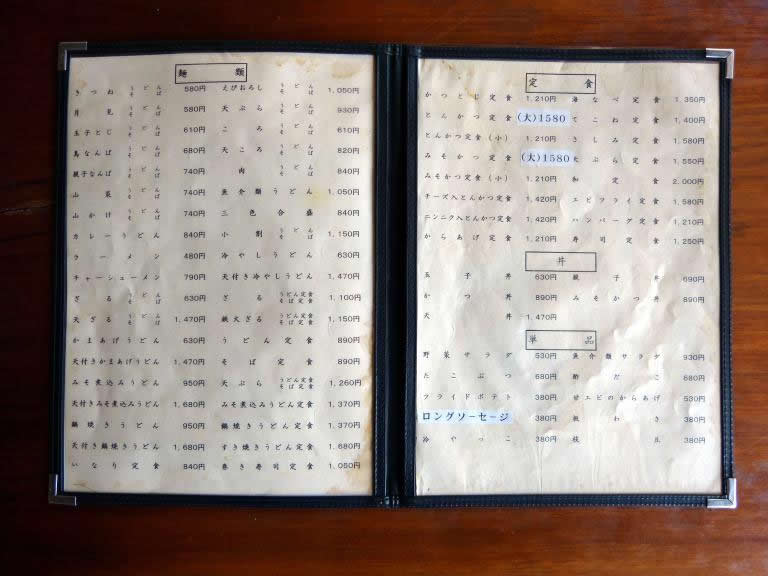 麺類
きつね うどん そば 580円 えびおろし うどん そば 1,050円
月見 うどん そば 580円 天ぷら うどん そば 930円
玉子とじ うどん そば 610円 ころ うどん そば 610円
鳥なんば うどん そば 680円 天ころ うどん そば 820円
親子なんば うどん そば 740円 肉 うどん そば 840円
山菜 うどん そば 740円 魚介類うどん 1,050円
山かけ うどん そば 740円 三色合盛 840円
カレーうどん 840円 小割 うどん そば 1,150円
ラーメン 480円 冷やしうどん 630円
チャーシューメン 790円 天付き冷やしうどん 1,470円
ざる うどん そば 630円 ざる うどん定食 そば定食 1,100円
天ざる うどん そば 1,470円 鉄火ざる うどん定食 そば定食 1,150円
かまあげうどん 630円 うどん定食 890円
天付きかまあげうどん 1,470円 そば定食 890円
みそ煮込みうどん 950円 天ぷら うどん定食 そば定食 1,260円
天付きみそ煮込みうどん 1,680円 みそ煮込みうどん定食 1,370円
鍋焼きうどん 950円 鍋焼きうどん定食 1,370円
天付き鍋焼きうどん 1,680円 すき焼きうどん定食 1,680円
いなり定食 840円 巻き寿司定食 1,050円
定食
かつとじ定食 1,210円 海なべ定食 1,350円
とんかつ定食 (大)1580 てこね定食 1,400円
とんかつ定食(小) 1,210円 さしみ定食 1,580円
みそかつ定食 (大)1580 天ぷら定食 1,550円
みそかつ定食(小) 1,210円 和定食 2,000円
チーズ入とんかつ定食 1,420円 エビフライ定食 1,580円
ニンニク入とんかつ定食 1,420円 ハンバーグ定食 1,210円
からあげ定食 1,210円 寿司定食 1,250円
丼
玉子丼 630円 親子丼 690円
かつ丼 890円 みそかつ丼 890円
天丼 1,470円
単品
野菜サラダ 530円 魚介類サラダ 930円
たこぶつ 680円 酢だこ 680円
フライドポテト 380円 甘エビのからあげ 530円
ロングソーセージ 380円 板わさ 380円
冷やっこ 380円 枝豆 380円